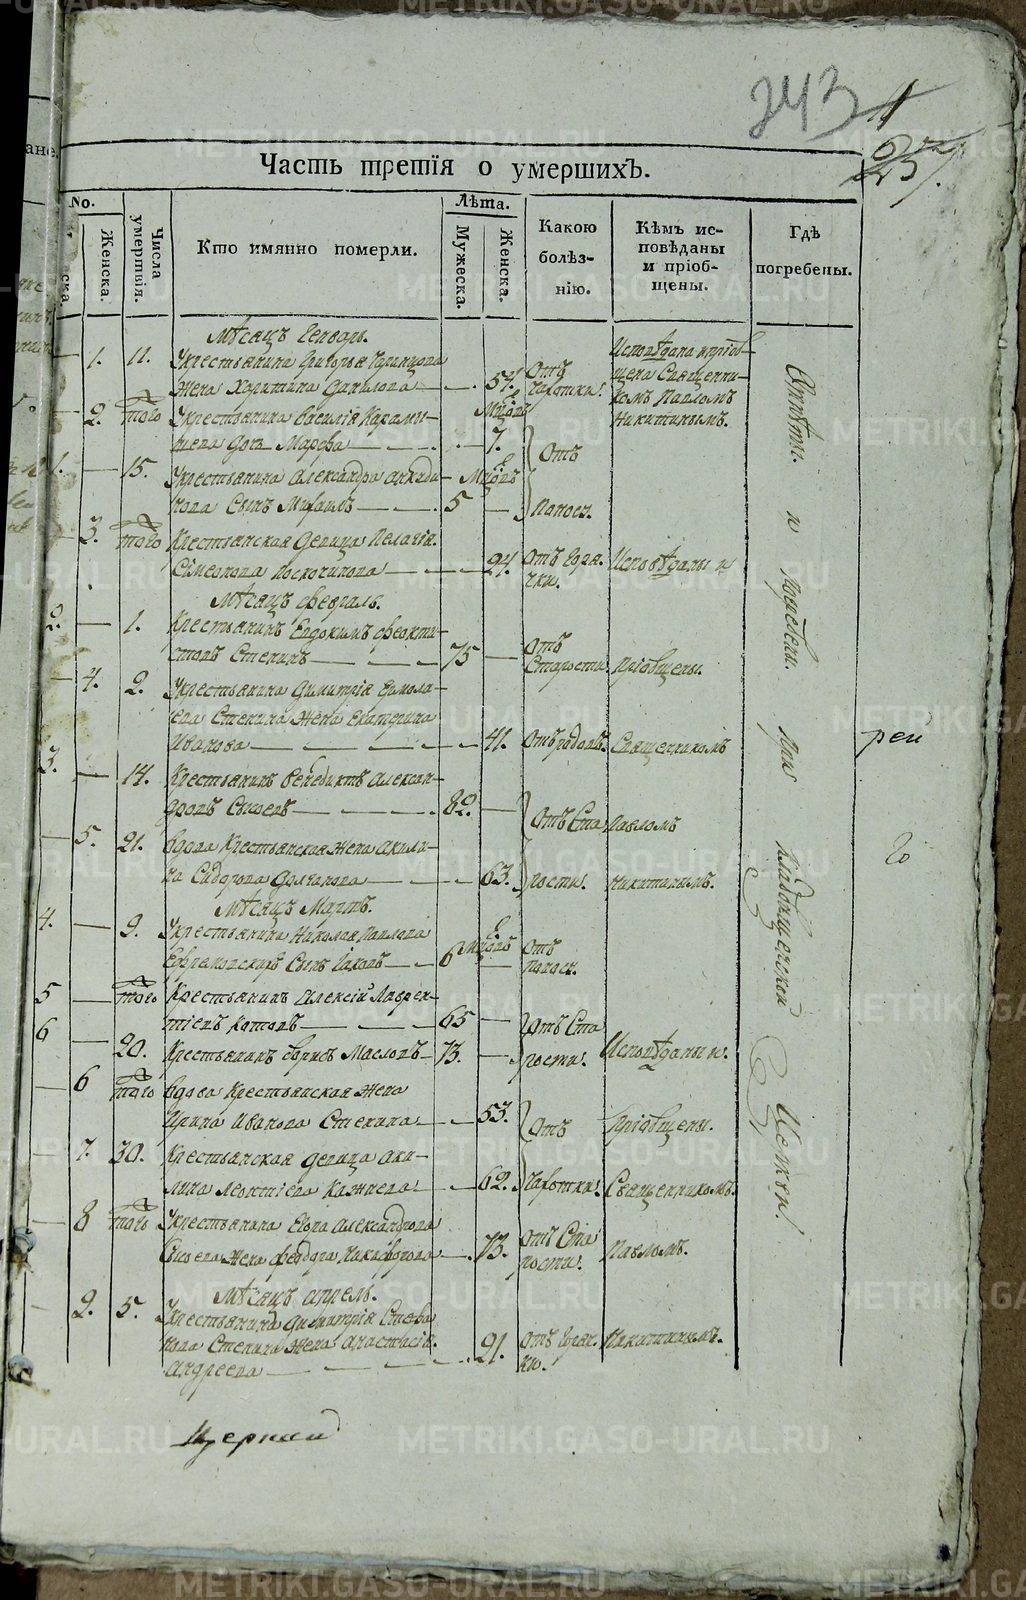 243
1
257.
Часть третїя о умершихъ.
No.
Лѣта.
Женска.
Числа умертвїя.
Кто имянно померли.
Мужеска.
Женска.
Какою болѣз-нїю.
Кѣмъ ис-повѣданы и прїоб-щены.
Гдѣ погребены.
Мѣсяцъ Генварь.
1. 11. Укрестьянина Григорья
жена Харитина Данилова — 54. Отъ чахотки.
Исповѣдана и прїоб-
щена Священни-
комъ Павломъ
Никитинымъ.
2. того Укрестьянина Василїя
дочь Марѳа — 7. Мцовъ
1. — 15. Укрестьянина Александра
Сынъ Михаилъ — 5 — Мцовъ
Отъ
Поноса.
3. того Крестьянская девица Пелагїя
Симеонова — 24. Отъ горя-
чки. Исповѣданы и
Мѣсяцъ февраль.
2. — 1. Крестьянинъ Евдокимъ Феокти-
стовъ Стенинъ — 75 — Отъ
Старости. Прїобщены.
4. 2. Укрестьянина Димитрїя Ермола-
ева Стенина жена Екатерина
Иванова — 41. Отъ родовъ. Священникомъ
3. — 14. Крестьянинъ Венедиктъ Алексан-
дровъ Сысоевъ — 82. —
Отъ Ста Павломъ
5. 21. Вдова Крестьянская жена Акили-
на Сидорова — 63. рости. Никитинымъ.
Мѣсяцъ Мартъ.
4. — 9. Укрестьянина Николая Павлова
Сынъ Иаковъ — 6 Мцовъ — Отъ
поноса.
5 — того Крестьянинъ Алексїй Лаврен-
тїевъ Котовъ — 65 — Отъ Ста
6 — 20. Крестьянинъ Борисъ Масловъ — 73. — рости. Исповѣданы и.
6 того Вдова Крестьянская жена
Ирина Иванова Стенина — 53. Отъ Прїобщены.
7. 30. Крестьянская девица Аки-
лина Леонтїева — 62. Чахотки. Священникомъ.
8 того Укрестьянина Егора Александрова
Сысоева жена — 73. Отъ Ста
рости. Павломъ.
Мѣсяцъ апрель.
9. 5. Укрестьянина Димитрїя
Стенина жена Анастасїя
Андреева — 21. Отъ горяч-
ки. Никитинымъ.
Отпѣты. и погребены. при кладбищенской Церкви.
рей
го